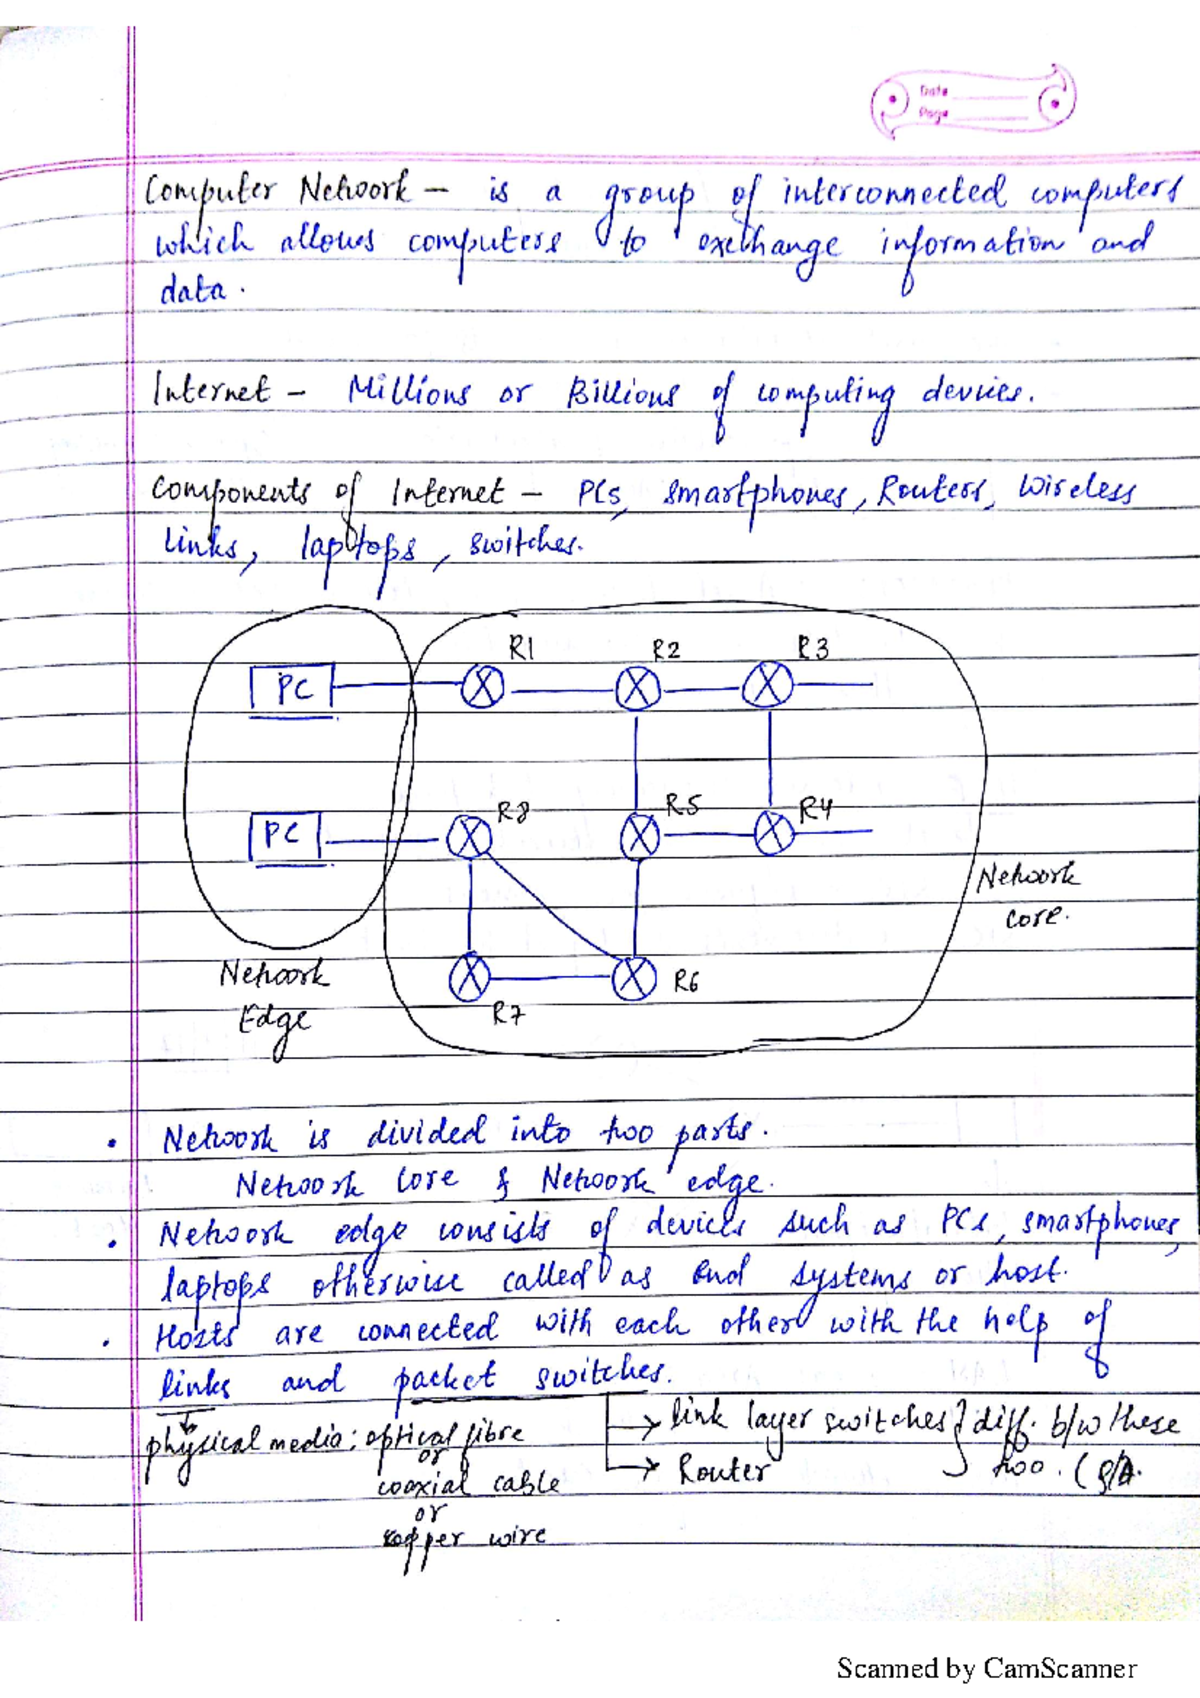 Date
Page
Computer Network – is a group of interconnected computers
which allows computers to exchange information and
data.
Internet – Millions or Billions of computing devices.
Components of Internet – PCs, smartphones, Routers, Wireless
links, laptops, switches.
R1 R2 R3
PC
R8 R5 R4
PC
Network
core.
Network
Edge
R6
R7
• Network is divided into two parts.
Network core & Network edge.
• Network edge consists of devices such as PCs, smartphones,
laptops otherwise called as end systems or host.
• Hosts are connected with each other with the help of
links and packet switches.
physical media: optical fibre
or
coaxial cable
or
copper wire
→ link layer switches } diff. b/w these
→ Router two. (
Scanned by CamScanner